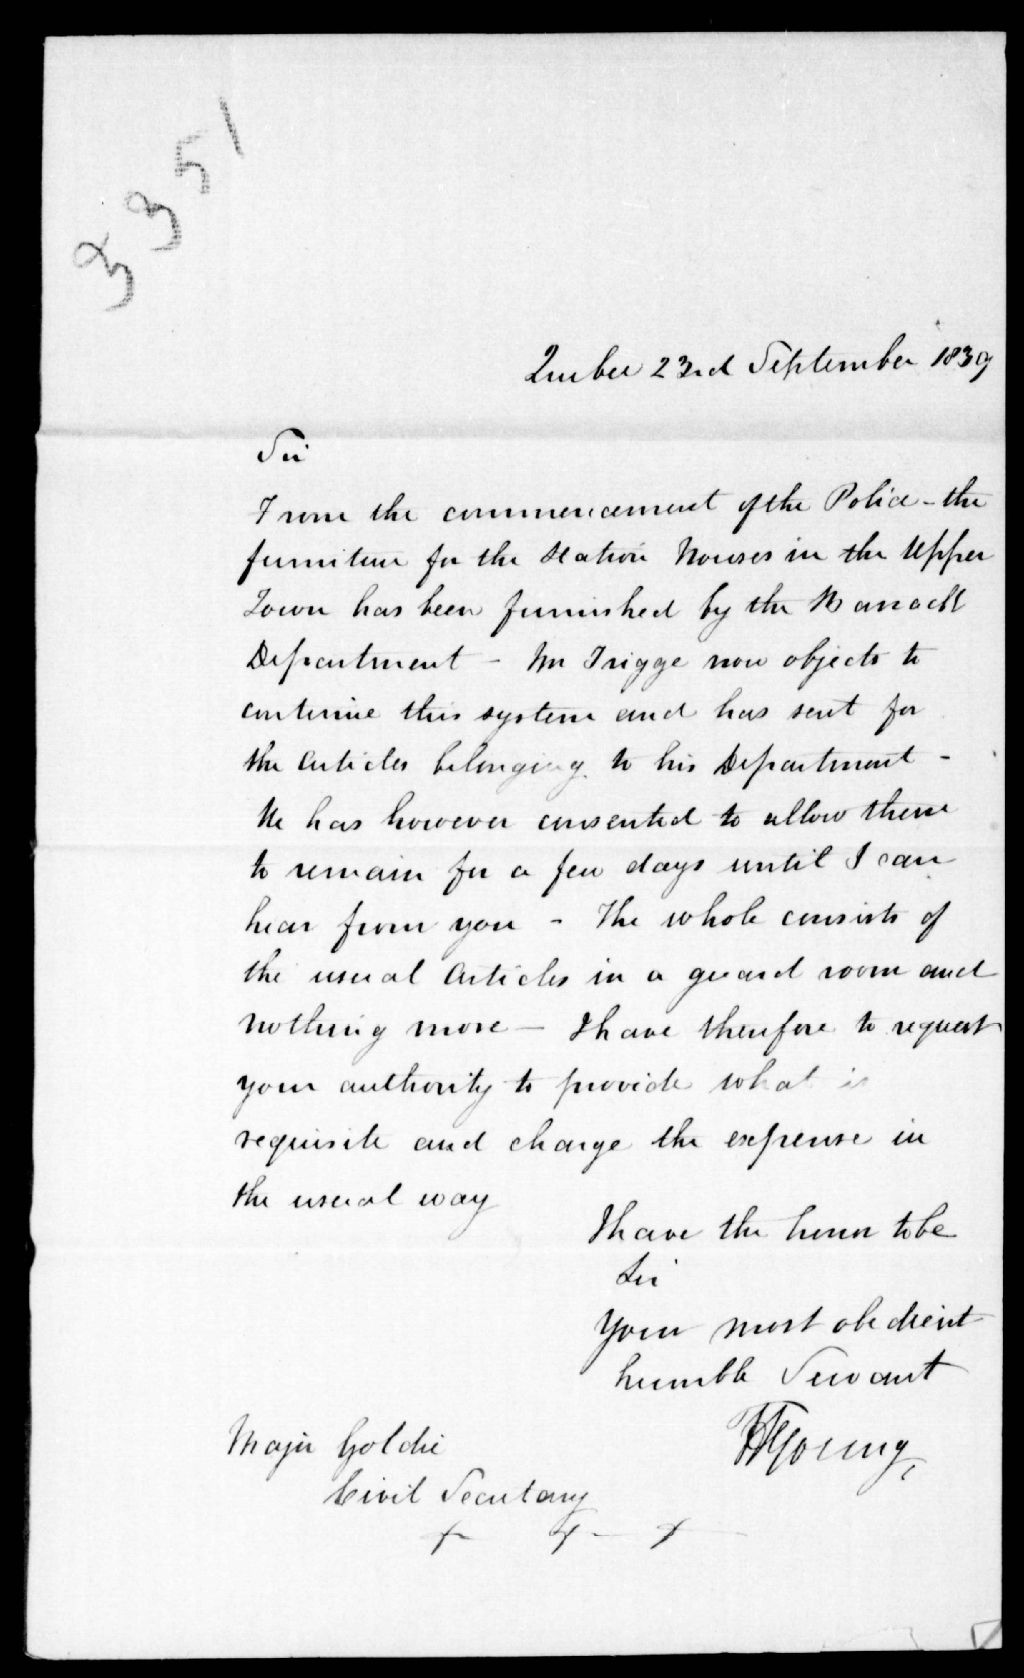 3351
Quebec 23rd September 1839
Sir
From the commencement of the Police - the
furniture for the Station Houses in the Upper
Town has been furnished by the Barrack
Department - Mr Trigge now objects to
continue this system and has sent for
the articles belonging to his Department -
He has however consented to allow them
to remain for a few days until I can
hear from you - The whole consists of
the usual articles in a guard room and
nothing more - I have therefore to request
your authority to provide what is
requisite and charge the expense in
the usual way
I have the honor to be
Sir
Your most obedient
humble Servant
TYoung
Major Goldie
Civil Secretary